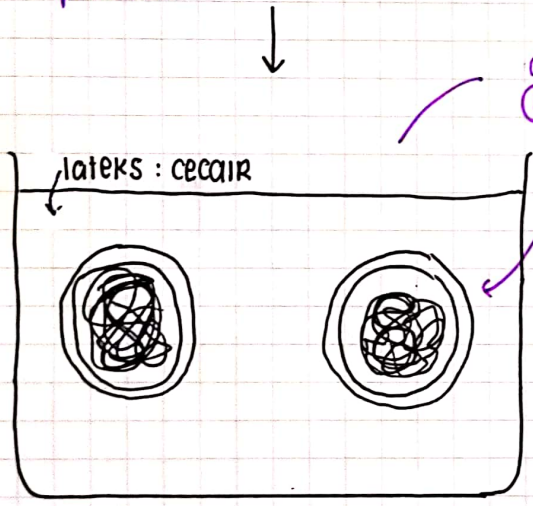 lateks : cecair